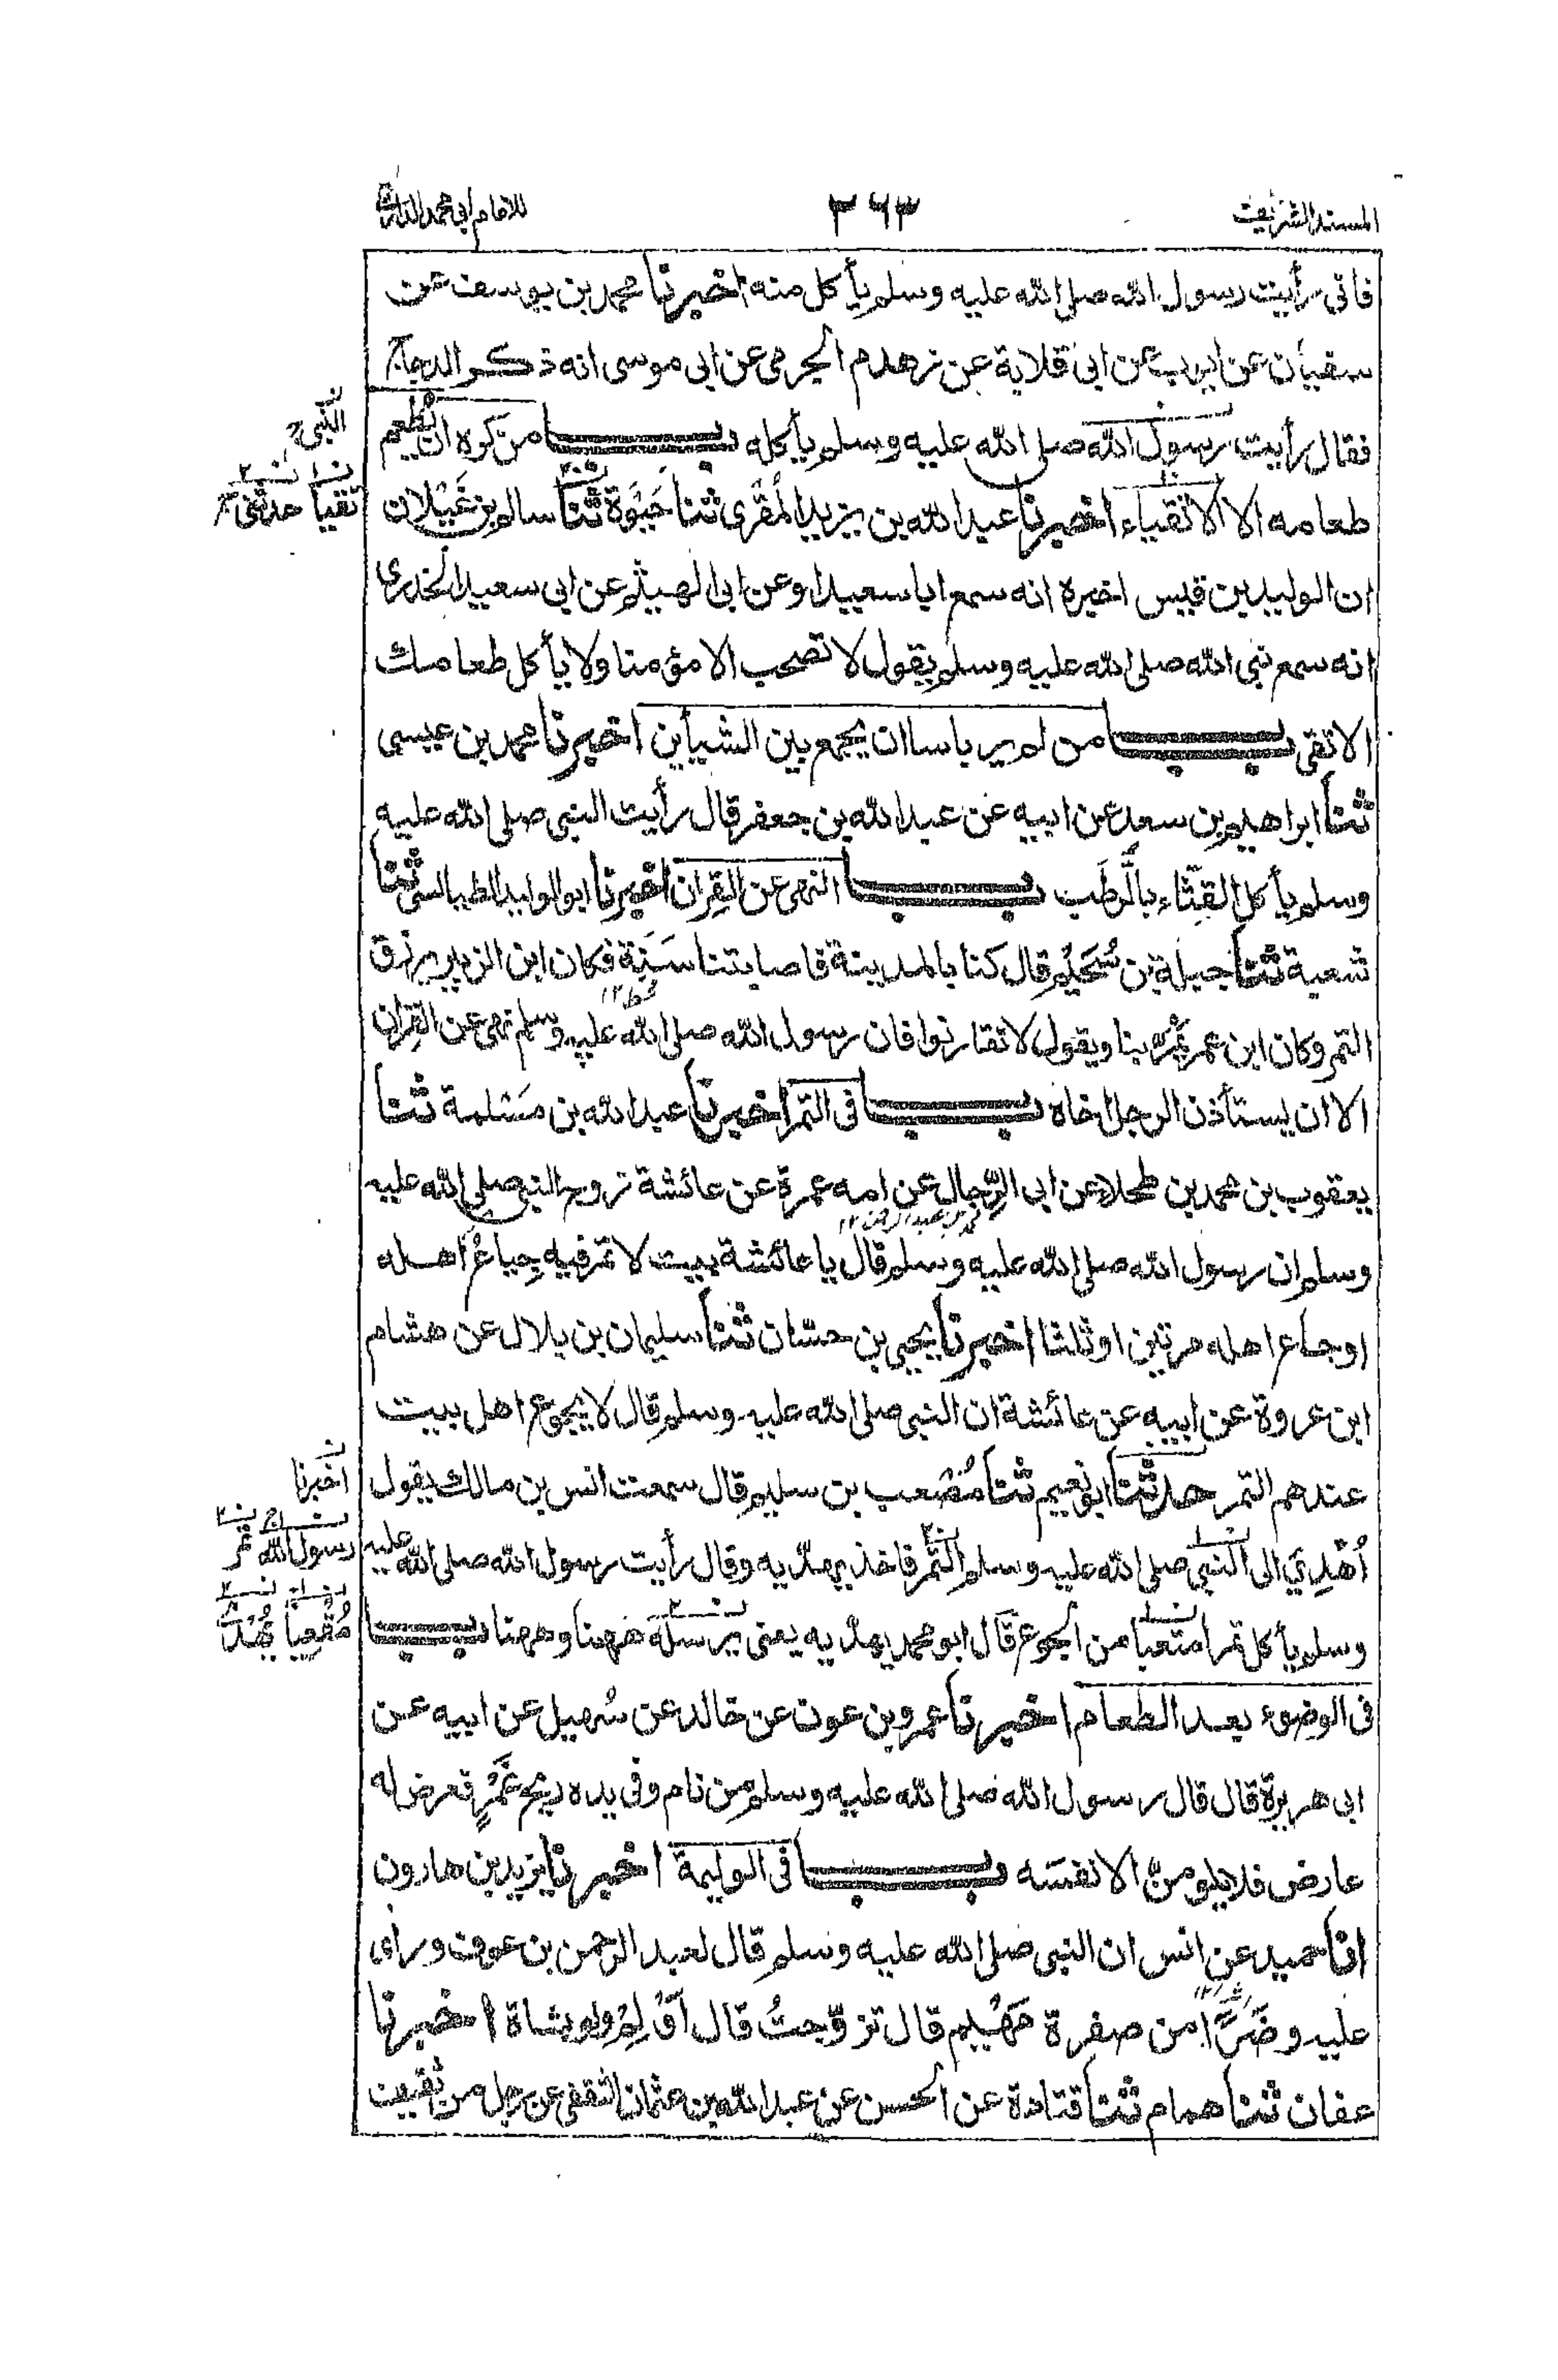 المسند الشريف
٢٦٣
للامام ابي محمد الدارمي
فاني رأيت رسول الله صلى الله عليه وسلم يأكل منه اخبرنا محمد بن يوسف عن
سفيان عن ايوب عن ابي قلابة عن زهدم الجرمي عن ابي موسى انه ذكر الدجاج
فقال رأيت رسول الله صلى الله عليه وسلم يأكله باب من كره ان يطعم
النبي
طعامه الا الاتقياء اخبرنا عبد الله بن يزيد المقرى ثنا حَيْوَة ثنا سالم بن غَيْلان
تقيا حدثني
ان الوليد بن قيس اخبره انه سمع ابا سعيد او عن ابي الهيثم عن ابي سعيد الخدري
انه سمع نبي الله صلى الله عليه وسلم يقول لا تصحب الا مؤمنا ولا يأكل طعامك
الا تقي باب من لم ير باسا ان يجمع بين الشيأين اخبرنا محمد بن عيسى
ثنا ابراهيم بن سعد عن ابيه عن عبد الله بن جعفر قال رأيت النبي صلى الله عليه
وسلم يأكل القِثّاء بالرُّطَب باب النهي عن القِران اخبرنا ابو الوليد الطيالسي ثنا
شعبة ثنا جبلة بن سُحَيْم قال كنا بالمدينة فاصابتنا سَنَة فكان ابن الزبير يرزق
قحط ١٢
التمر وكان ابن عمر يَمُرّ بنا ويقول لا تقارنوا فان رسول الله صلى الله عليه وسلم نهى عن القِران
الا ان يستأذن الرجل اخاه باب في التمر اخبرنا عبد الله بن مَسْلمة ثنا
يعقوب بن محمد بن طحلاء عن ابي الرِّجال عن امه عمرة عن عائشة زوج النبي صلى الله عليه
محمد بن عبد الرحمن ١٢
وسلم ان رسول الله صلى الله عليه وسلم قال يا عائشة بيت لا تمر فيه جِياعٌ اهله
او جاع اهله مرتين او ثلثا اخبرنا يحيى بن حسّان ثنا سليمان بن بلال عن هشام
ابن عروة عن ابيه عن عائشة ان النبي صلى الله عليه وسلم قال لا يجوع اهل بيت
عندهم التمر حدثنا ابو نعيم ثنا مُصْعب بن سليم قال سمعت انس بن مالك يقول
اخبرنا
اُهْدِيَ الى النبي صلى الله عليه وسلم التمر فاخذ يهدّيه وقال رأيت رسول الله صلى الله عليه
رسول الله تمر
وسلم يأكل تمرا متعبا من الجوع قال ابو محمد يهدّيه يعني يرسله ههنا وههنا باب
مُقْعِياً
في الوضوء بعد الطعام اخبرنا عمرو بن عون عن خالد عن سُهيل عن ابيه عن
ابي هريرة قال قال رسول الله صلى الله عليه وسلم من نام وفي يده ريح غَمَرٍ فعرض له
عارض فلا يلومنّ الا نفسَه باب في الوليمة اخبرنا يزيد بن هارون
انا حميد عن انس ان النبي صلى الله عليه وسلم قال لعبد الرحمن بن عوف وراى
عليه وضَرًا من صفرة مَهْيَم قال تزوّجتُ قال اَوْلِمْ ولو بشاة اخبرنا
عفان ثنا همام ثنا قتادة عن الحسن عن عبد الله بن عثمان الثقفي عن رجل من ثقيف